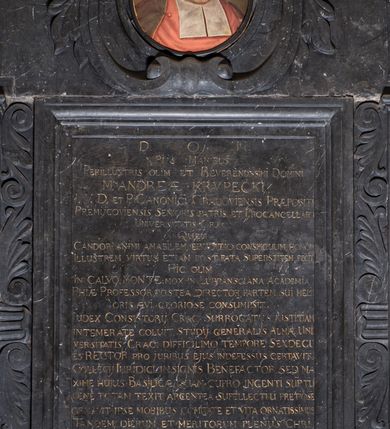 D O M
PIIS MANIBUS
PERILLUSTRIS OLIM ET REVERENDISSMI DOMINI
M. ANDREÆ KRUPECKI
I. V. D. ET P. CANONICI CRACOVIENSIS PRÆPOSITI
SENIORIS PATRIS ET PROCANCELLARII
UNIVERSITATIS CRAC
QUEM
CANDOR ANIMI AMABILEM CONSPICUUM
ILLUSTREM VIRTUS ETIAM SUPERSTITEM
HIC OLIM
IN CALVO MONTE MOX IN ACADEMIA
PHIÆ PROFESSOR POSTEA DIRECTOR PARTEM SUI
ÆVI GLORIOSE CONSUMPSIT
IUDEX CONSISTORIJ CRAC SURROGATUS IUSTITIAM
INTEMERATE COLUIT STUDIJ GENERALIS ALMÆ UNI
VERSITATIS CRAC DIFFICILIMO TEMPORE SEXDECI
ES RECTOR PRO JURIBUS EJUS INDEFESSUS CERTAVIT
COLLEGIJ IURIDICI INSIGNIS BENEFACTOR SED MA
XIME HUIUS BASILICÆ QUAM CUPRO INGENTI SUPTU
TOTAM TEXIT ARGENTEA SUPELLECTILI PRETIOSE
IPSE MORIBUS COMPTE ET VITA ORNATISSIMUS
TANDEM DIERUM ET MERITORUM PLENUS CHRI